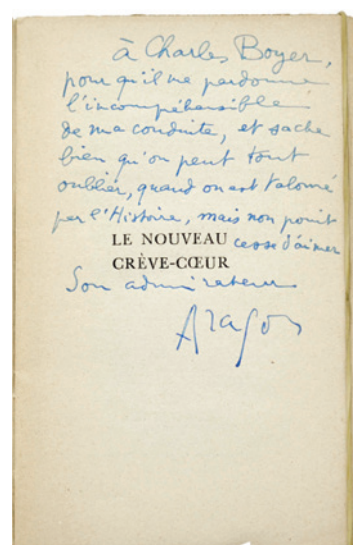 à Charles Boyer,
pour qu'il me pardonne
l'incompréhensible
de ma conduite, et sache
bien qu'on peut tout
oublier, quand on est talonné
par l'Histoire, mais non point
LE NOUVEAU
cesser d'aimer
CRÈVE-CŒUR
Son admirateur
Aragon